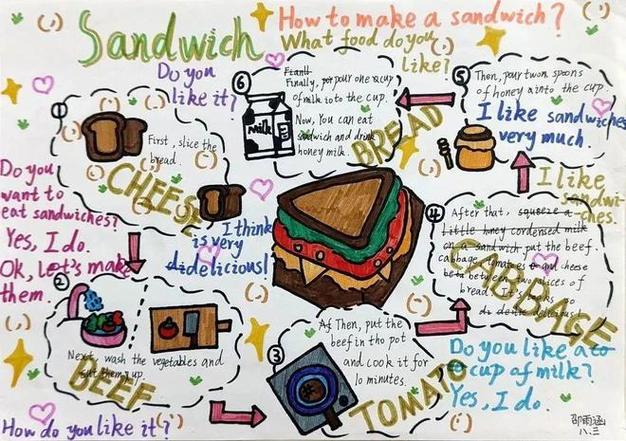 Sandwich
How to make a sandwich?
What food do you
like?
Do you
like it?
①
First, slice the
bread.
CHEESE
Do you
want to
eat sandwiches?
Yes, I do.
Ok, Let's make
them.
I think
is very
didelicious!
②
Next, wash the vegetables and
cut them up.
BEEF
How do you like it?
③
Af Then, put the
beef in tho pot
and cook it for
10 minutes.
TOMATO
④
After that, squeeze a
little honey condensed milk
on a sandwich put the beef.
cabbage tomatoes and cheese
between two pieces of
bread. It's looks so
delicious.
CABBAGE
⑤
Then, pour two spoons
of honey into the cup.
I like sandwiches
very much.
I like
sandwi-
ches.
⑥
Finally, pour one cup
of milk into the cup.
Now, You can eat
sandwich and drink
honey milk.
milk
BREAD
Do you like a
cup of milk?
Yes, I do.
邵雨涵
八.三